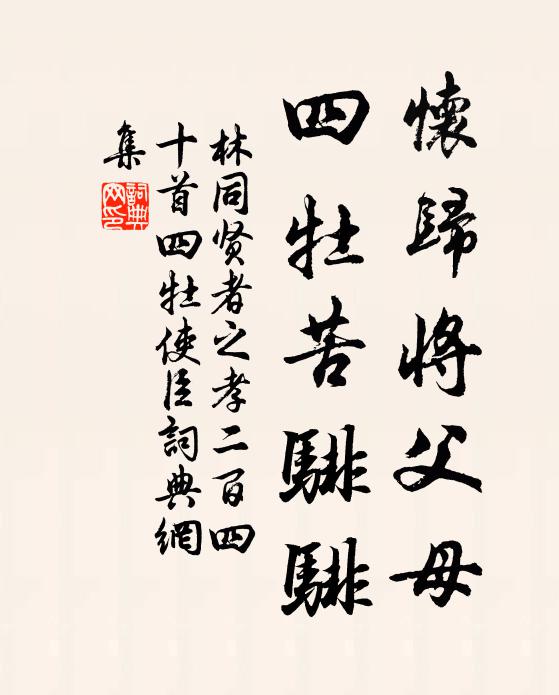 懷歸將父母
四牡苦騑騑
林同贤者之孝二百四
十首四牡使臣詞典網
集
詞典网印